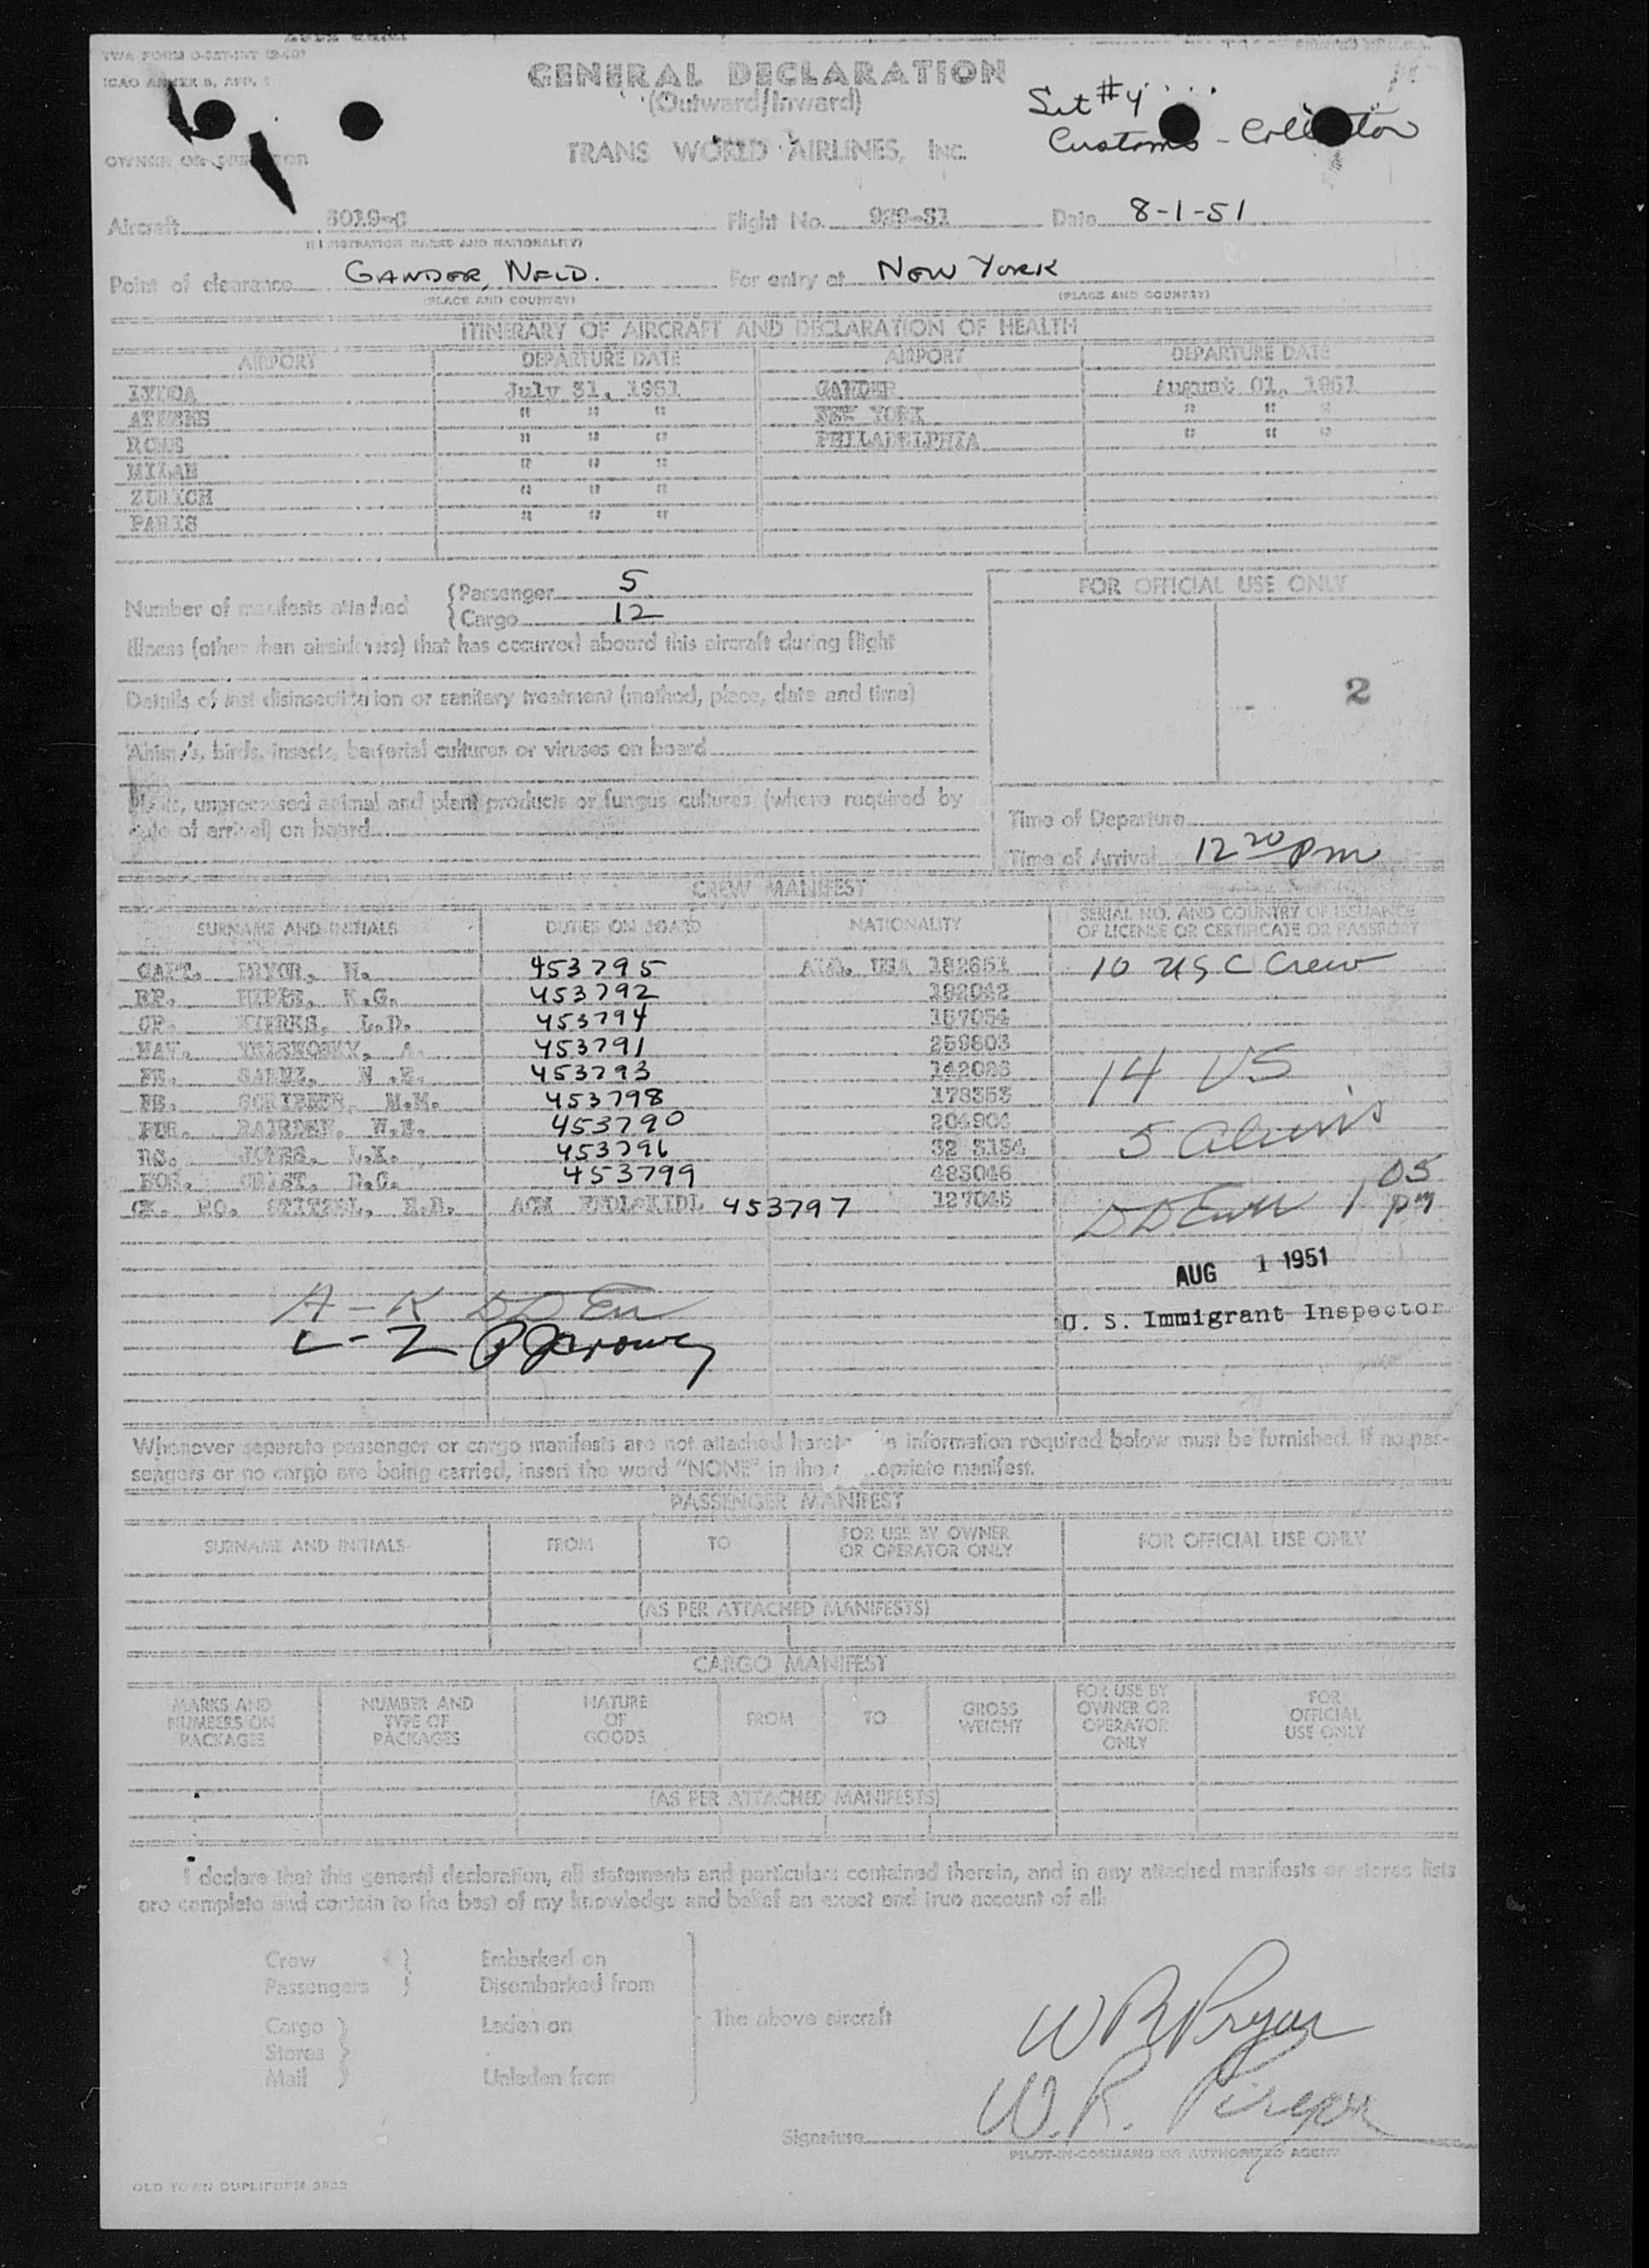 TWA FORM
ICAO ANNEX 9, APP. 1
GENERAL DECLARATION
(Outward/Inward)
TRANS WORLD AIRLINES, INC.
Set #4
Customs - Collector
OWNER OR OPERATOR
Aircraft 6019-C Flight No. Date 8-1-51
(REGISTRATION MARKS AND NATIONALITY)
Point of clearance GANDER, NFLD. For entry at NEW YORK
(PLACE AND COUNTRY) (PLACE AND COUNTRY)
ITINERARY OF AIRCRAFT AND DECLARATION OF HEALTH
AIRPORT DEPARTURE DATE AIRPORT DEPARTURE DATE
LYDDA July 31, 1951 GANDER August 01, 1951
ATHENS " " " NEW YORK " " "
ROME " " " PHILADELPHIA " " "
MILAN " " "
ZURICH " " "
PARIS " " "
Number of manifests attached { Passenger 5
{ Cargo 12
FOR OFFICIAL USE ONLY
Illness (other than airsickness) that has occurred aboard this aircraft during flight
2
Details of last disinsectization or sanitary treatment (method, place, date and time)
Animals, birds, insects, bacterial cultures or viruses on board
Plants, unprocessed animal and plant products or fungus cultures (where required by
state of arrival) on board
Time of Departure
Time of Arrival 12 20 pm
CREW MANIFEST
SURNAME AND INITIALS DUTIES ON BOARD NATIONALITY SERIAL NO. AND COUNTRY OF ISSUANCE
OF LICENSE OR CERTIFICATE OR PASSPORT
CAPT. PRYOR, 453795 USA 182651 10 USC Crew
K.G. 453792 192042
L.D. 453794 167054
NAV. A. 453791 259803
FE. 453793 142083 14 US
M.M. 453798 178353
PUR. 453790 204904 5 Aliens
JONES, 453796 32 3154
HOS. 453799 485046
453797 127045 1 05 pm
AUG 1 1951
A - K
L - Z
U. S. Immigrant Inspector
Whenever separate passenger or cargo manifests are not attached hereto the information required below must be furnished. If no pas-
sengers or no cargo are being carried, insert the word "NONE" in the appropriate manifest.
PASSENGER MANIFEST
SURNAME AND INITIALS FROM TO FOR USE BY OWNER
OR OPERATOR ONLY FOR OFFICIAL USE ONLY
(AS PER ATTACHED MANIFESTS)
CARGO MANIFEST
MARKS AND
NUMBERS ON
PACKAGES NUMBER AND
TYPE OF
PACKAGES NATURE
OF
GOODS FROM TO GROSS
WEIGHT FOR USE BY
OWNER OR
OPERATOR
ONLY FOR
OFFICIAL
USE ONLY
(AS PER ATTACHED MANIFESTS)
I declare that this general declaration, all statements and particulars contained therein, and in any attached manifests or stores lists
are complete and contain to the best of my knowledge and belief an exact and true account of all:
Crew } Embarked on
Passengers } Disembarked from
The above aircraft
Cargo } Laden on
Stores }
Mail } Unladen from
W R Pryor
W. R. Pryor
Signature
PILOT-IN-COMMAND OR AUTHORIZED AGENT
OLD TOWN DUPLIFORM